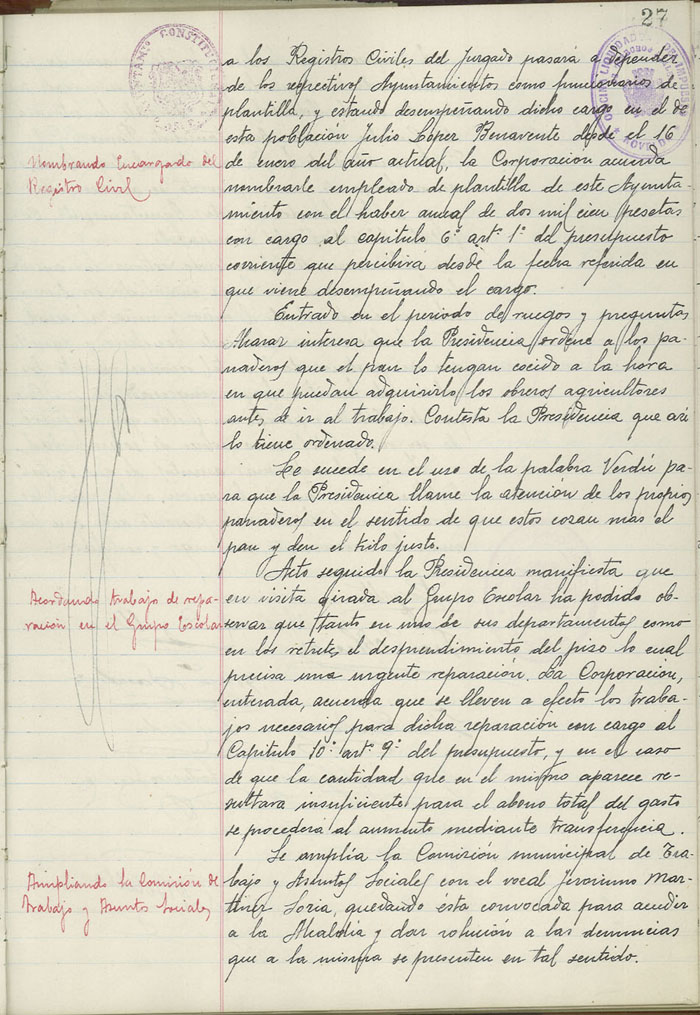 27
a los Registros Civiles del Juzgado pasará a depender
de los respectivos Ayuntamientos como funcionarios de
plantilla, y estando desempeñando dicho cargo en el de
esta población Julio López Benavente desde el 16
Nombrando Encargado del
Registro Civil
de enero del año actual, la Corporación acuerda
nombrarle empleado de plantilla de este Ayunta-
miento con el haber anual de dos mil cien pesetas
con cargo al capítulo 6º artº 1º del presupuesto
corriente que percibirá desde la fecha referida en
que viene desempeñando el cargo.
Entrado en el periodo de ruegos y preguntas
Alcaraz interesa que la Presidencia ordene a los pa-
naderos que el pan lo tengan cocido a la hora
en que puedan adquirirlo los obreros agricultores
antes de ir al trabajo. Contesta la Presidencia que así
lo tiene ordenado.
Le sucede en el uso de la palabra Verdú pa-
ra que la Presidencia llame la atención de los propios
panaderos en el sentido de que estos cozan mas el
pan y den el kilo justo.
Acto seguido la Presidencia manifiesta que
Acordando trabajo de repa-
ración en el Grupo Escolar
en visita girada al Grupo Escolar ha podido ob-
servar que tanto en uno de sus departamentos como
en los retretes el desprendimiento del piso lo cual
precisa una urgente reparación. La Corporación,
enterada, acuerda que se lleven a efecto los traba-
jos necesarios para dicha reparación con cargo al
Capítulo 10º artº 9º del presupuesto, y en el caso
de que la cantidad que en el mismo aparece re-
sultara insuficiente para el abono total del gasto
se procederá al aumento mediante transferencia.
Ampliando la Comisión de
Trabajo y Asuntos Sociales
Se amplía la Comisión municipal de Tra-
bajo y Asuntos Sociales con el vocal Jeronimo Mar-
tinez Soria, quedando esta convocada para acudir
a la Alcaldia y dar solución a las denuncias
que a la misma se presenten en tal sentido.